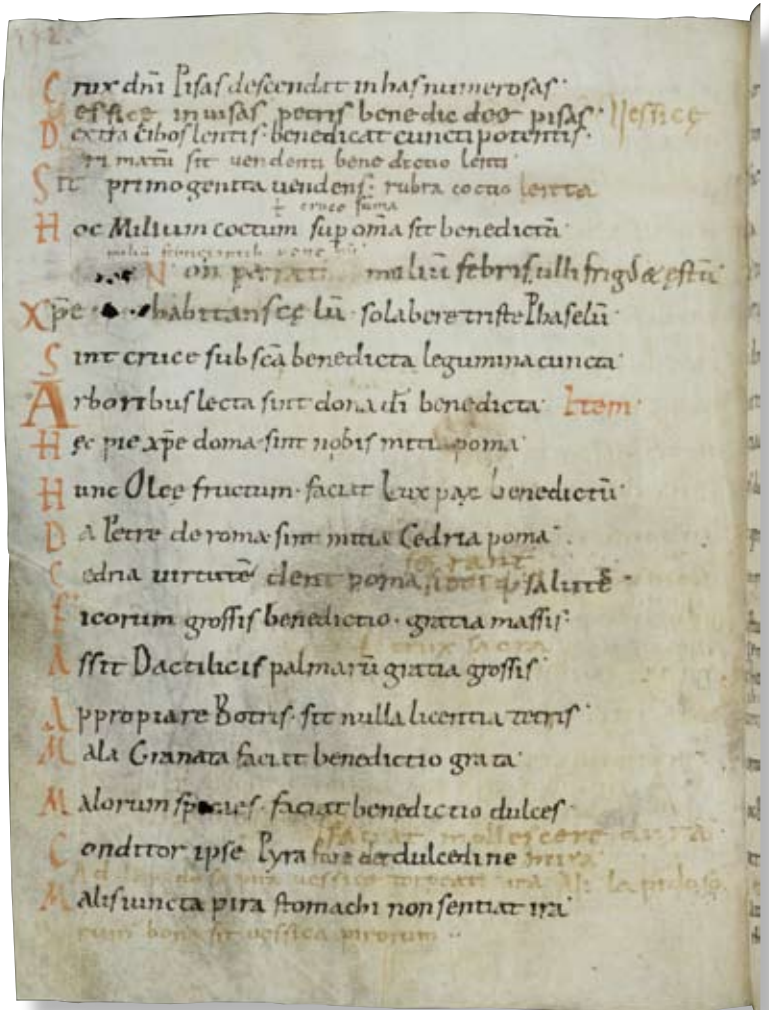 Crux dñi Pisas descendat in has numerosas
essice inuisas petris benedic deꝰ pisas Uessicę
Dextra cibos lentis benedicat cunctipotentis
ri matū sit uendenti benedictio lenti
Sit primogenita uendens rubra coctio lenita
ł cruce sūma
Hoc Milium coctum sup om̄a sit benedictū
Non miliū febris ulli frigꝰ & ęstū
Xp̄e habitans cęlū solabere triste Phaselū
Sint cruce sub scā benedicta legumina cuncta
Arboribus lecta sint dona dī benedicta Item
Hęc pie xp̄e doma sint nobis mitia poma
Hunc Olee fructum faciat Lux pax benedictū
Da Petre de roma sint mitia Cedria poma
Cedria uirtutē dent poma salutē
Ficorum grossis benedictio gratia massis
ł crux sacra
Assit Dactilicis palmarū gratia grossis
Appropiare Botris sit nulla licentia tetris
Mala Granata faciat benedictio grata
Malorum species faciat benedictio dulces
faciat mollescere durā
Conditor ipse Pyra dulcedine mira
Malis iuncta pira stomachi non sentiat irā
cum bona sit uessica pirorum